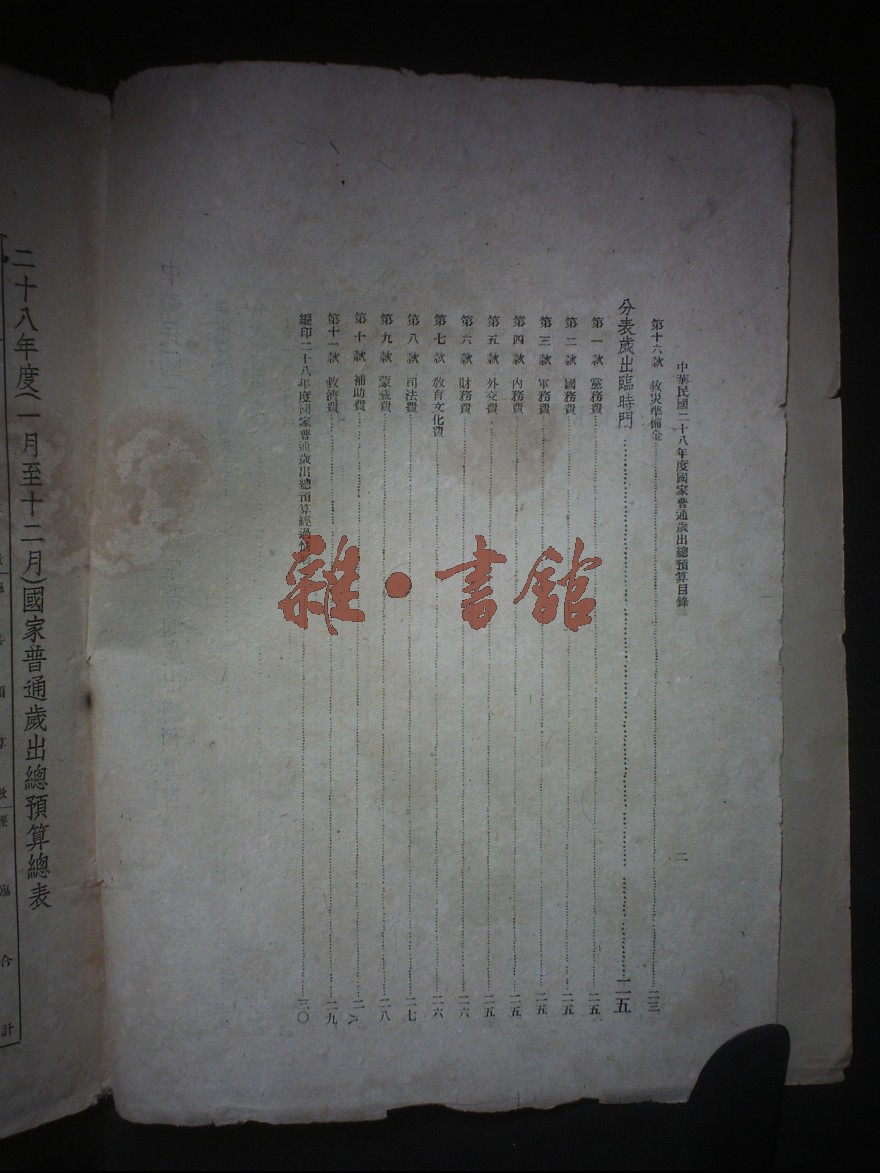 中華民國二十八年度國家普通歲出總預算目錄
二
第十六款 救災準備金 二三
分表歲出臨時門 二五
第一款 黨務費 二五
第二款 國務費 二五
第三款 軍務費 二五
第四款 內務費 二五
第五款 外交費 二五
第六款 財務費 二六
第七款 教育文化費 二六
第八款 司法費 二七
第九款 蒙藏費 二八
第十款 補助費
第十一款 救濟費 二九
編印二十八年度國家普通歲出總預算經過 三〇
雜·書館
二十八年度(一月至十二月)國家普通歲出總預算總表
臨
合
計